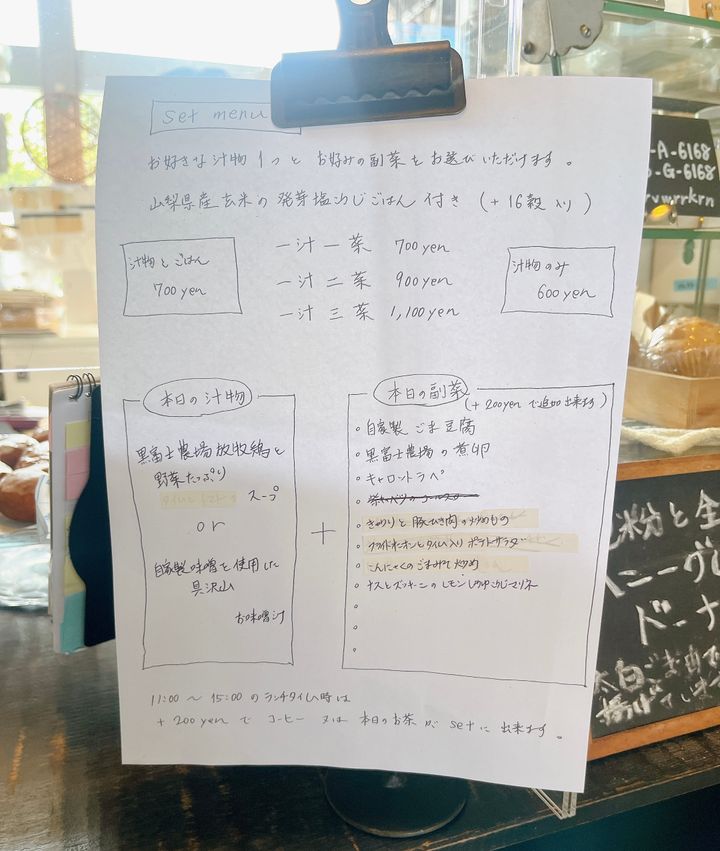 set menu
お好きな汁物1つと お好みの副菜をお選びいただけます。
山梨県産玄米の発芽塩こうじごはん付き (+16穀入り)
汁物とごはん
700yen
一汁一菜 700yen
一汁二菜 900yen
一汁三菜 1,100yen
汁物のみ
600yen
本日の汁物
黒富士農場放牧鶏と
野菜たっぷり
スープ
or
自家製味噌を使用した
具沢山
お味噌汁
+
本日の副菜
(+200yenで追加出来ます)
・自家製ごま豆腐
・黒富士農場の煮卵
・キャロットラペ
・きゅうりと豚ひき肉の炒めもの
・フライドオニオンとタイム入りポテトサラダ
・こんにゃくのごまみそ炒め
・ナスとズッキーニのレモンしょうゆこうじマリネ
11:00 ～ 15:00 のランチタイム時は
+200yenで コーヒー 又は 本日のお茶が setに出来ます。
-A-6168
-G-6168
rvmrrkrn
粉と全
ニーグレ
ドーナ
太白ごま油で
揚げて